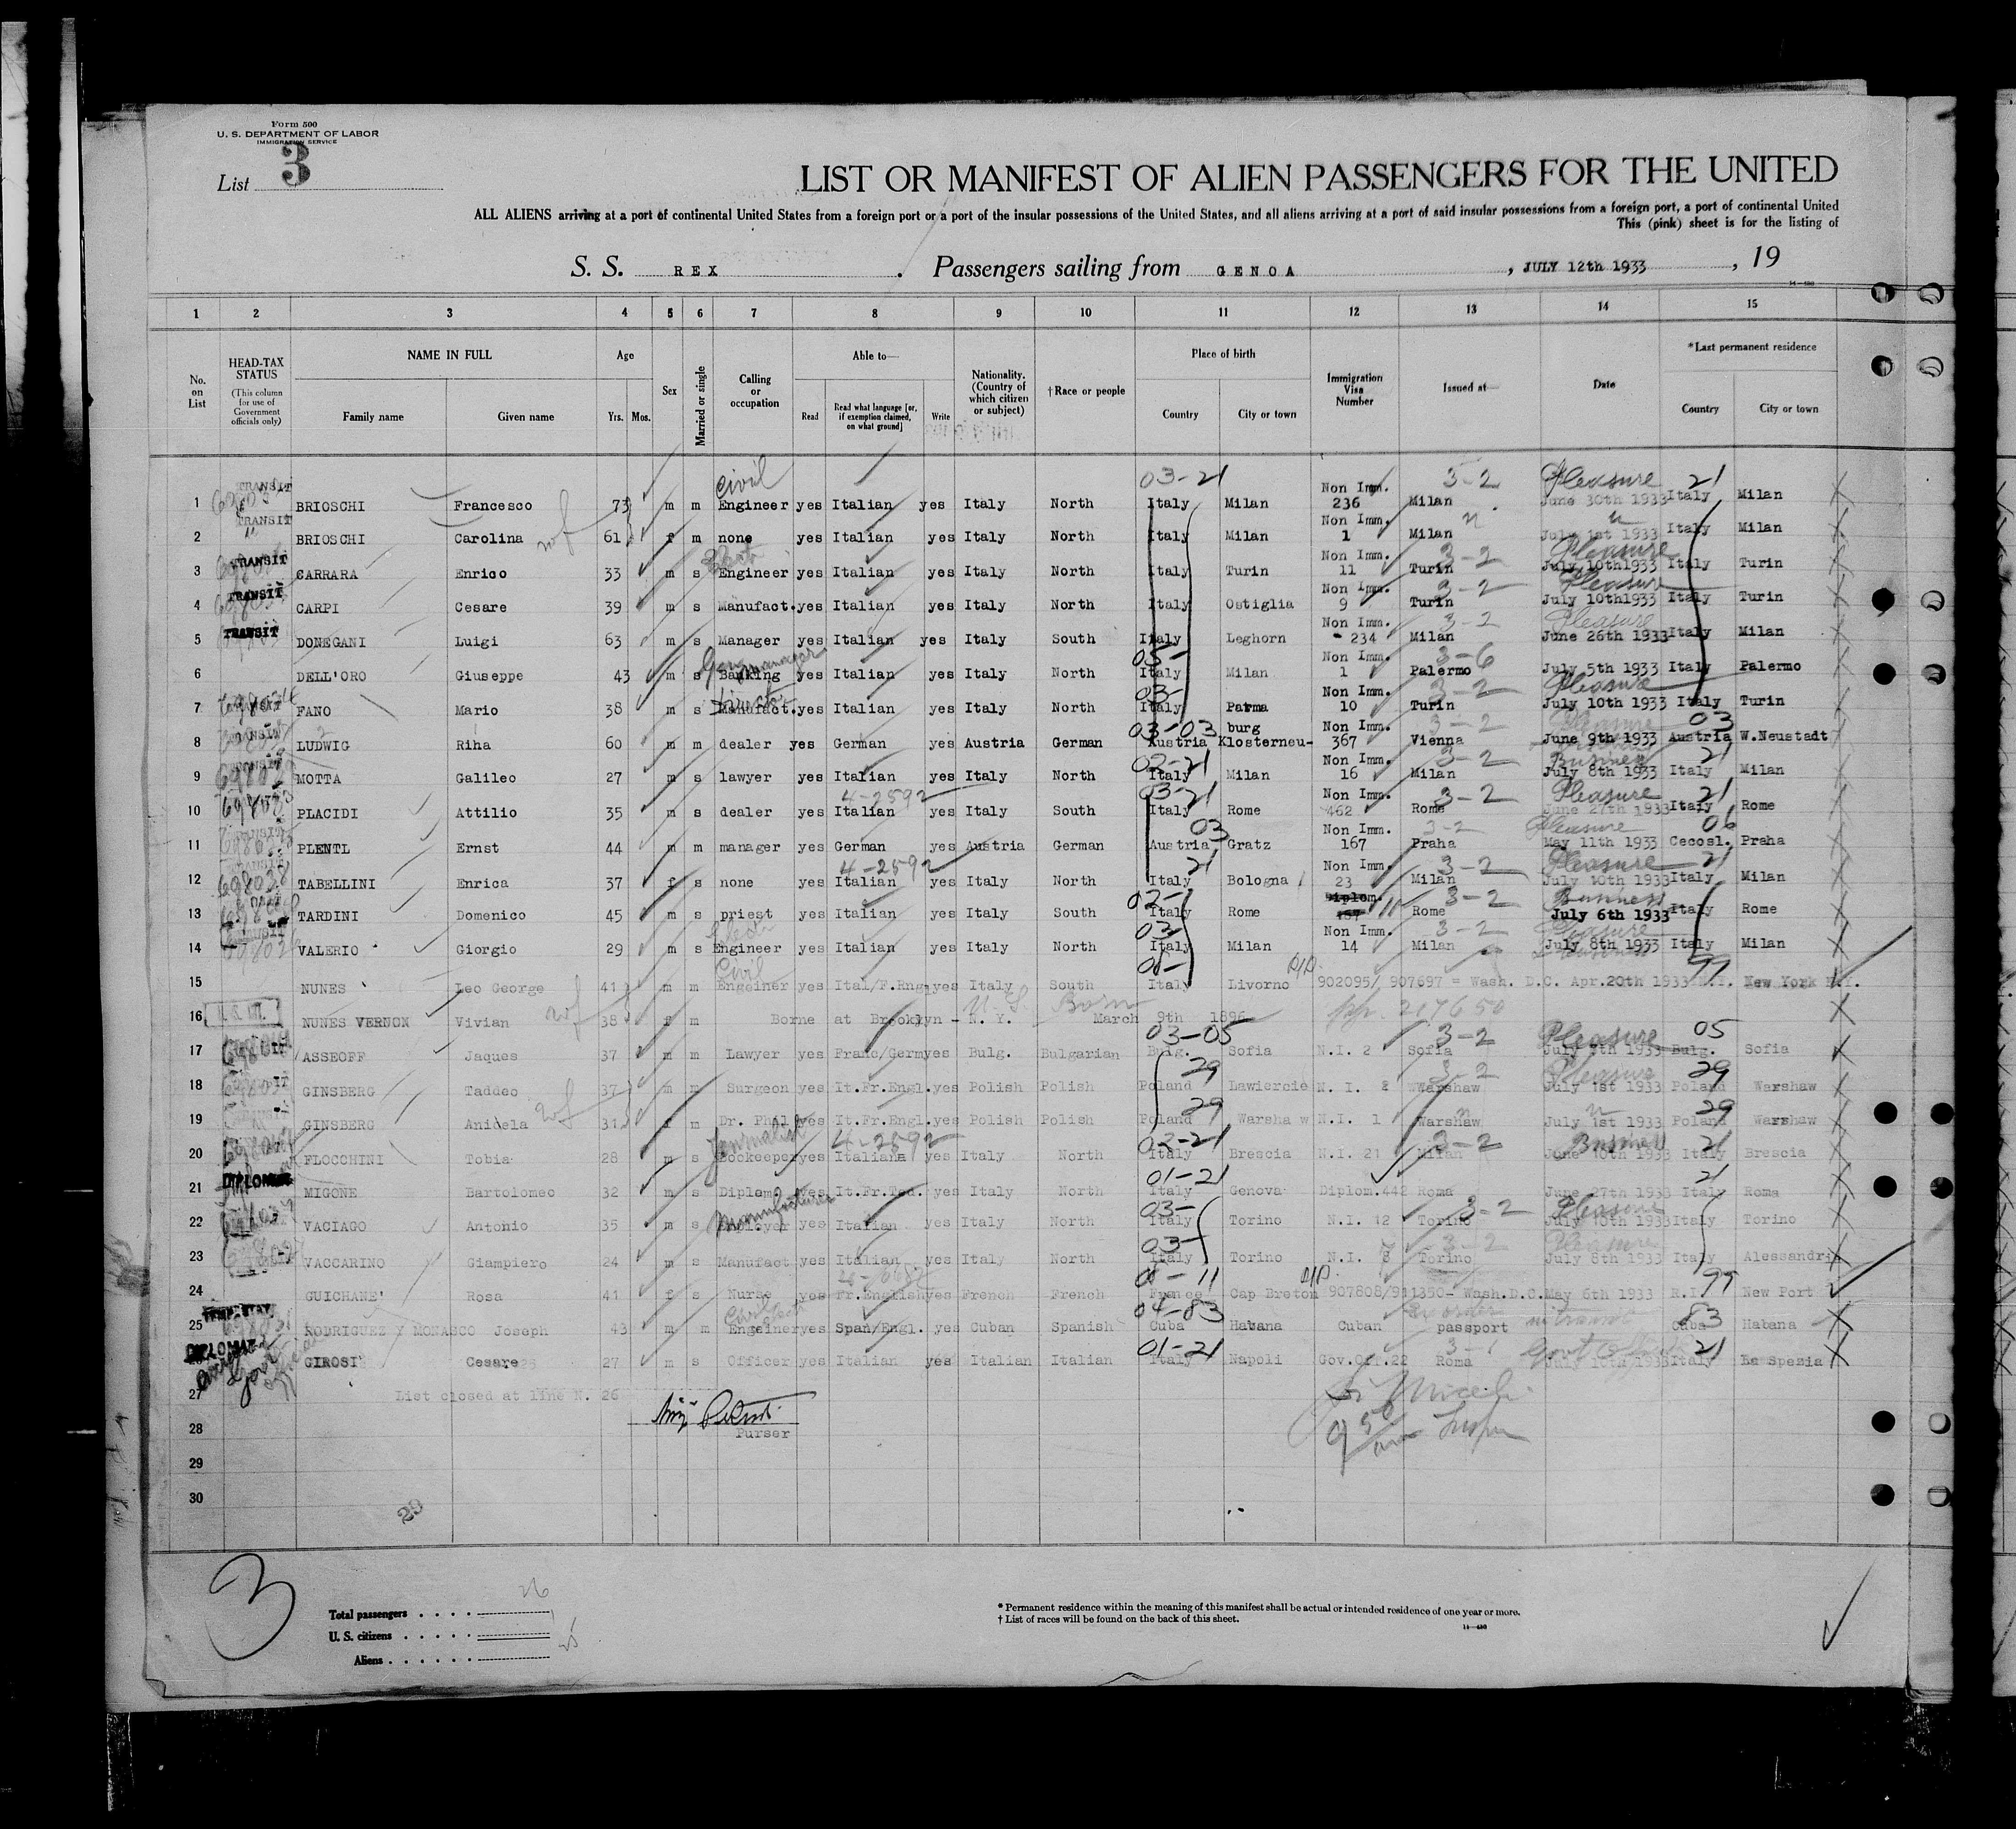 Form 500
U. S. DEPARTMENT OF LABOR
IMMIGRATION SERVICE
List 3
LIST OR MANIFEST OF ALIEN PASSENGERS FOR THE UNITED
ALL ALIENS arriving at a port of continental United States from a foreign port or a port of the insular possessions of the United States, and all aliens arriving at a port of said insular possessions from a foreign port, a port of continental United
This (pink) sheet is for the listing of
S. S. REX . Passengers sailing from GENOA , JULY 12th 1933 , 19
1 2 3 4 5 6 7 8 9 10 11 12 13 14 15
No. on List
HEAD-TAX STATUS (This column for use of Government officials only)
NAME IN FULL Family name Given name
Age Yrs. Mos.
Sex
Married or single
Calling or occupation
Able to— Read Read what language [or, if exemption claimed, on what ground] Write
Nationality. (Country of which citizen or subject)
†Race or people
Place of birth Country City or town
Immigration Visa Number
Issued at—
Date
*Last permanent residence Country City or town
TRANSIT Civil 03-21 Non Imm. 3-2 Pleasure 21
1 BRIOSCHI Francesco 73 m m Engineer yes Italian yes Italy North Italy Milan 236 Milan June 30th 1933 Italy Milan
TRANSIT Non Imm.
2 BRIOSCHI Carolina wf 61 f m none yes Italian yes Italy North Italy Milan 1 Milan July 1st 1933 Italy Milan
TRANSIT Non Imm. 3-2 Pleasure
3 CARRARA Enrico 33 m s Engineer yes Italian yes Italy North Italy Turin 11 Turin July 10th1933 Italy Turin
TRANSIT Non Imm. 3-2 Pleasure
4 CARPI Cesare 39 m s Manufact. yes Italian yes Italy North Italy Ostiglia 9 Turin July 10th1933 Italy Turin
TRANSIT Non Imm. 3-2 Pleasure
5 DONEGANI Luigi 63 m s Manager yes Italian yes Italy South Italy Leghorn 234 Milan June 26th 1933 Italy Milan
Gen manager 05- Non Imm. 3-6
6 DELL'ORO Giuseppe 43 m s Banking yes Italian yes Italy North Italy Milan 1 Palermo July 5th 1933 Italy Palermo
03- Non Imm. 3-2 Pleasure
7 FANO Mario 38 m s Manufact. yes Italian yes Italy North Italy Parma 10 Turin July 10th 1933 Italy Turin
03-03 burg Non Imm. 3-2 03
8 LUDWIG Riha 60 m m dealer yes German yes Austria German Austria Klosterneu- 367 Vienna June 9th 1933 Austria W.Neustadt
02-21 Non Imm. 3-2 Business 21
9 MOTTA Galileo 27 m s lawyer yes Italian yes Italy North Italy Milan 16 Milan July 8th 1933 Italy Milan
4-2592 03-21 Non Imm. 3-2 Pleasure 21
10 PLACIDI Attilio 35 m s dealer yes Italian yes Italy South Italy Rome 462 Rome June 27th 1933 Italy Rome
03 Non Imm. 3-2 Pleasure 06
11 PLENTL Ernst 44 m m manager yes German yes Austria German Austria Gratz 167 Praha May 11th 1933 Cecosl. Praha
4-2592 21 Non Imm. 3-2 Pleasure 21
12 TABELLINI Enrica 37 f s none yes Italian yes Italy North Italy Bologna 23 Milan July 10th 1933 Italy Milan
02- Diplom. 3-2 Business
13 TARDINI Domenico 45 m s priest yes Italian yes Italy South Italy Rome Rome July 6th 1933 Italy Rome
03- Non Imm. 3-2 Pleasure
14 VALERIO Giorgio 29 m s Engineer yes Italian yes Italy North Italy Milan 14 Milan July 8th 1933 Italy Milan
Civil 99
15 NUNES Leo George 41 m m Engeiner yes Ital/F.Engl yes Italy South Italy Livorno 902095/ 907697 = Wash. D.C. Apr.20th 1933 N.Y. New York N.Y.
wf U.S. Born
16 NUNES VERNON Vivian 38 f m Borne at Brooklyn - N. Y. March 9th 1896 217650
03-05 3-2 Pleasure 05
17 ASSEOFF Jaques 37 m m Lawyer yes Franc/Germ yes Bulg. Bulgarian Bulg. Sofia N.I. 2 Sofia July 5th 1933 Bulg. Sofia
29 3-2 Pleasure 29
18 GINSBERG Taddeo 37 m m Surgeon yes It.Fr.Engl. yes Polish Polish Poland Lawiercie N. I. 2 Warshaw July 1st 1933 Poland Warshaw
wf 29 29
19 GINSBERG Aniela 31 f m Dr. Phil yes It.Fr.Engl. yes Polish Polish Poland Warsha w N.I. 1 Warshaw July 1st 1933 Poland Warshaw
Journalist 4-2592 02-21 3-2 Business 21
20 FLOCCHINI Tobia 28 m s Bookeeper yes Italiana yes Italy North Italy Brescia N.I. 21 Milan June 10th 1933 Italy Brescia
DIPLOMAT 01-21 21
21 MIGONE Bartolomeo 32 m s Diplom. yes It.Fr.Ted. yes Italy North Italy Genova Diplom.442 Roma June 27th 1933 Italy Roma
Manufacturer 03- 3-2 Pleasure
22 VACIAGO Antonio 35 m s Employer yes Italian yes Italy North Italy Torino N.I. 12 Torino July 10th 1933 Italy Torino
03- 3-2 Pleasure
23 VACCARINO Giampiero 24 m s Manufact yes Italian yes Italy North Italy Torino N.I. 8 Torino July 8th 1933 Italy Alessandria
99
24 GUICHANE' Rosa 41 f s Nurse yes Fr.English yes French French France Cap Breton 907808/911350- Wash.D.C. May 6th 1933 R.I. New Port
04-83 83
25 RODRIGUEZ Y MONASCO Joseph 43 m m Engeiner yes Span/Engl. yes Cuban Spanish Cuba Habana Cuban passport Cuba Habana
DIPLOMAT 01-21 3-1 Govt Official 21
26 GIROSI Cesare 27 m s Officer yes Italian yes Italian Italian Italy Napoli Gov.Off.22 Roma July 10th 1933 Italy La Spezia
27 List closed at line N. 26
28 Purser
29
30
29
3
Total passengers . . . . 26
U. S. citizens . . . . . 1
Aliens . . . . . . 25
* Permanent residence within the meaning of this manifest shall be actual or intended residence of one year or more.
† List of races will be found on the back of this sheet.